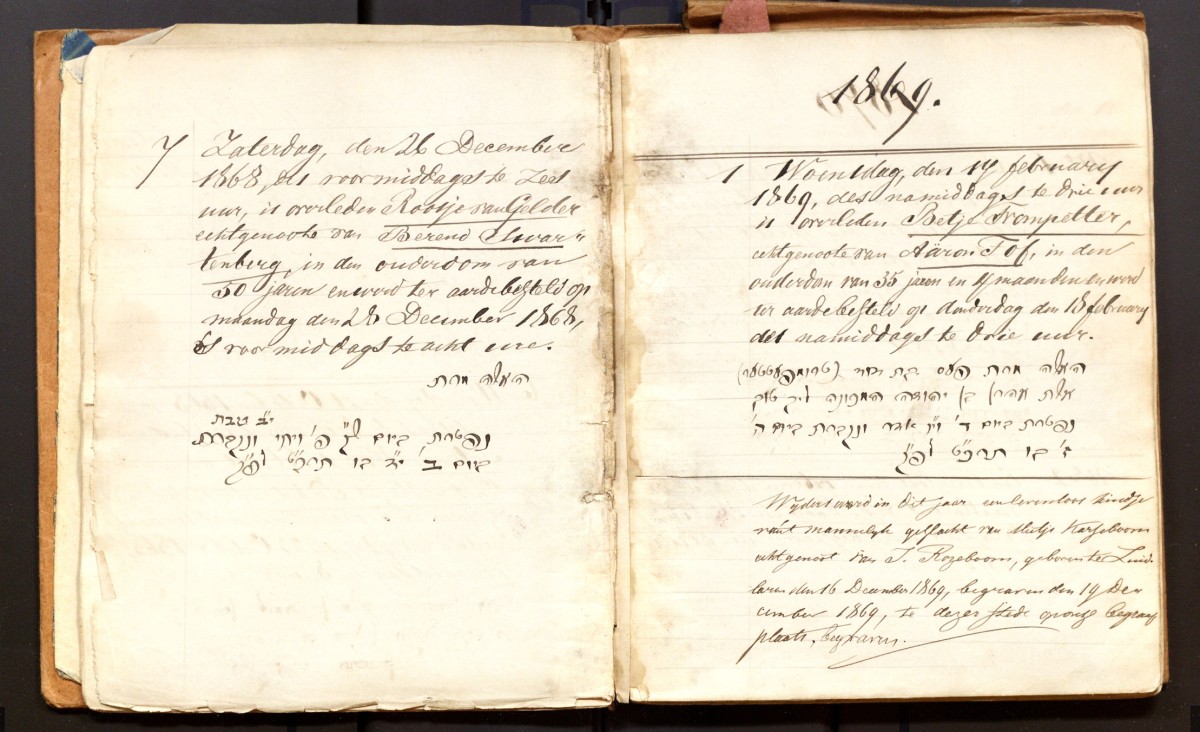 7 Zaterdag, den 26 December
1868, des voormiddags te Zes
uur, is overleden Roosje van Gelder
echtgenoote van Berend Swar-
tenberg, in den ouderdom van
50 jaren en werd ter aarde besteld op
maandag den 28 December 1868,
voormiddags te acht ure.
האלה מרת
י״ב טבת
נפטרת ביום ש״ק פ׳ ויחי ונקברת
ביום ב׳ י״ד בו תרכ״ט לפ״ק
1869.
1 Woensdag, den 17 february
1869, des namiddags te drie uur
is overleden Betje Trompetter,
echtgenoote van Aäron Tof, in den
ouderdom van 35 jaren en 4 maanden en werd
ter aarde besteld op donderdag den 18 february
des namiddags te drie uur.
האלה מרת בת דוד (טראמפעטטער)
אלת אהרן בן יהודה המכונה ליב טוב
נפטרת ביום ד׳ ו׳ אדר ונקברת ביום ה׳
ז׳ בו תרכ״ט לפ״ק
Wijders werd in dit jaar een levenloos kindje
van't mannelijk geslacht van Mietje Karseboom
echtgenoot van J. Rozeboom, geboren te Zuid-
laren den 16 December 1869, begraven den 19 De-
cember 1869, te dezer stede op onze begraaf
plaats, begraven.